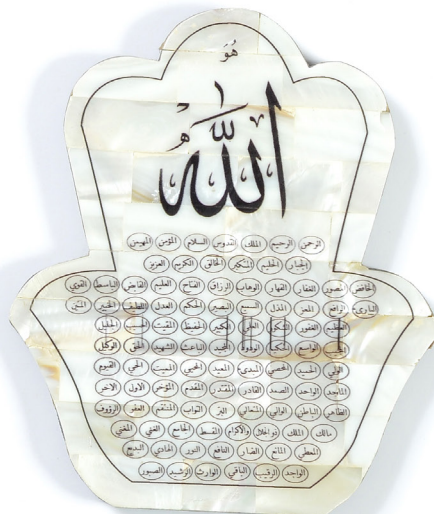 هُوَ
اللّٰهُ
الرحمن الرحيم الملك القدوس السلام المؤمن المهيمن
الجبار الحليم المتكبر الخالق الكريم العزيز
الخافض المصور الغفار القهار الوهاب الرزاق الفتاح العليم القابض الباسط القوي
البارىء الرافع المعز المذل السميع البصير الحكم العدل اللطيف الخبير المتين
العظيم الغفور الحفيظ المقيت الجليل
الواسع الودود المجيد الباعث الشهيد الحق الوكيل
الولي الحميد المحصي المبدىء المعيد المحيي المميت الحي القيوم
الماجد الواحد الصمد القادر المقتدر المقدم المؤخر الاول الاخر
الظاهر الباطن الوالي المتعالي البر التواب المنتقم العفو الرؤوف
مالك الملك ذو الجلال والاكرام المقسط الجامع الغني المغني
المعطي المانع الضار النافع النور الهادي البديع
الواجد الرقيب الباقي الوارث الرشيد الصبور